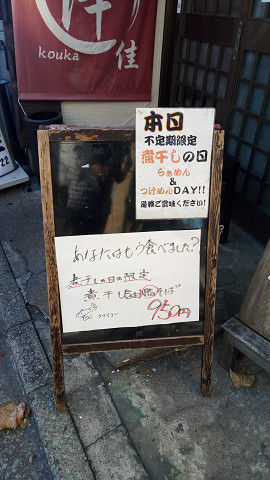 佳
kouka
22
本日
不定期限定
煮干しの日
らぁめん
&
つけめんDAY!!
是非ご賞味ください!
あなたはもう食べました?
煮干しの日の限定
煮干し
そば
950円